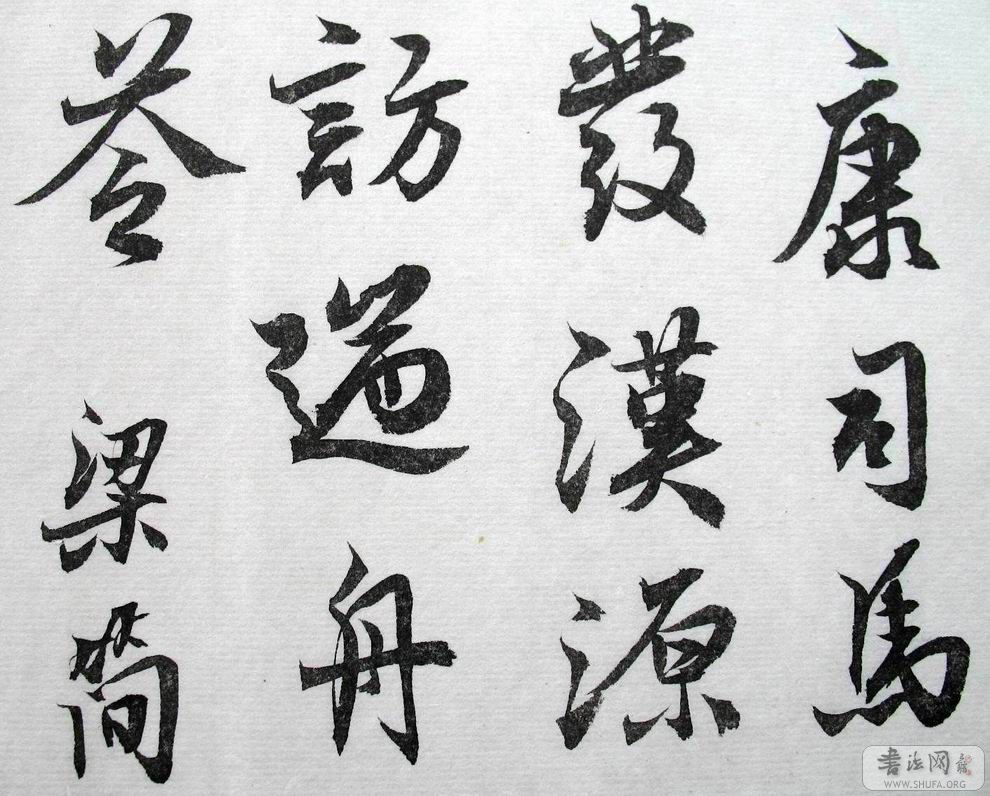 康司馬
發漢源
訪遄舟
荅 梁簡
書法网
WWW.SHUFA.ORG